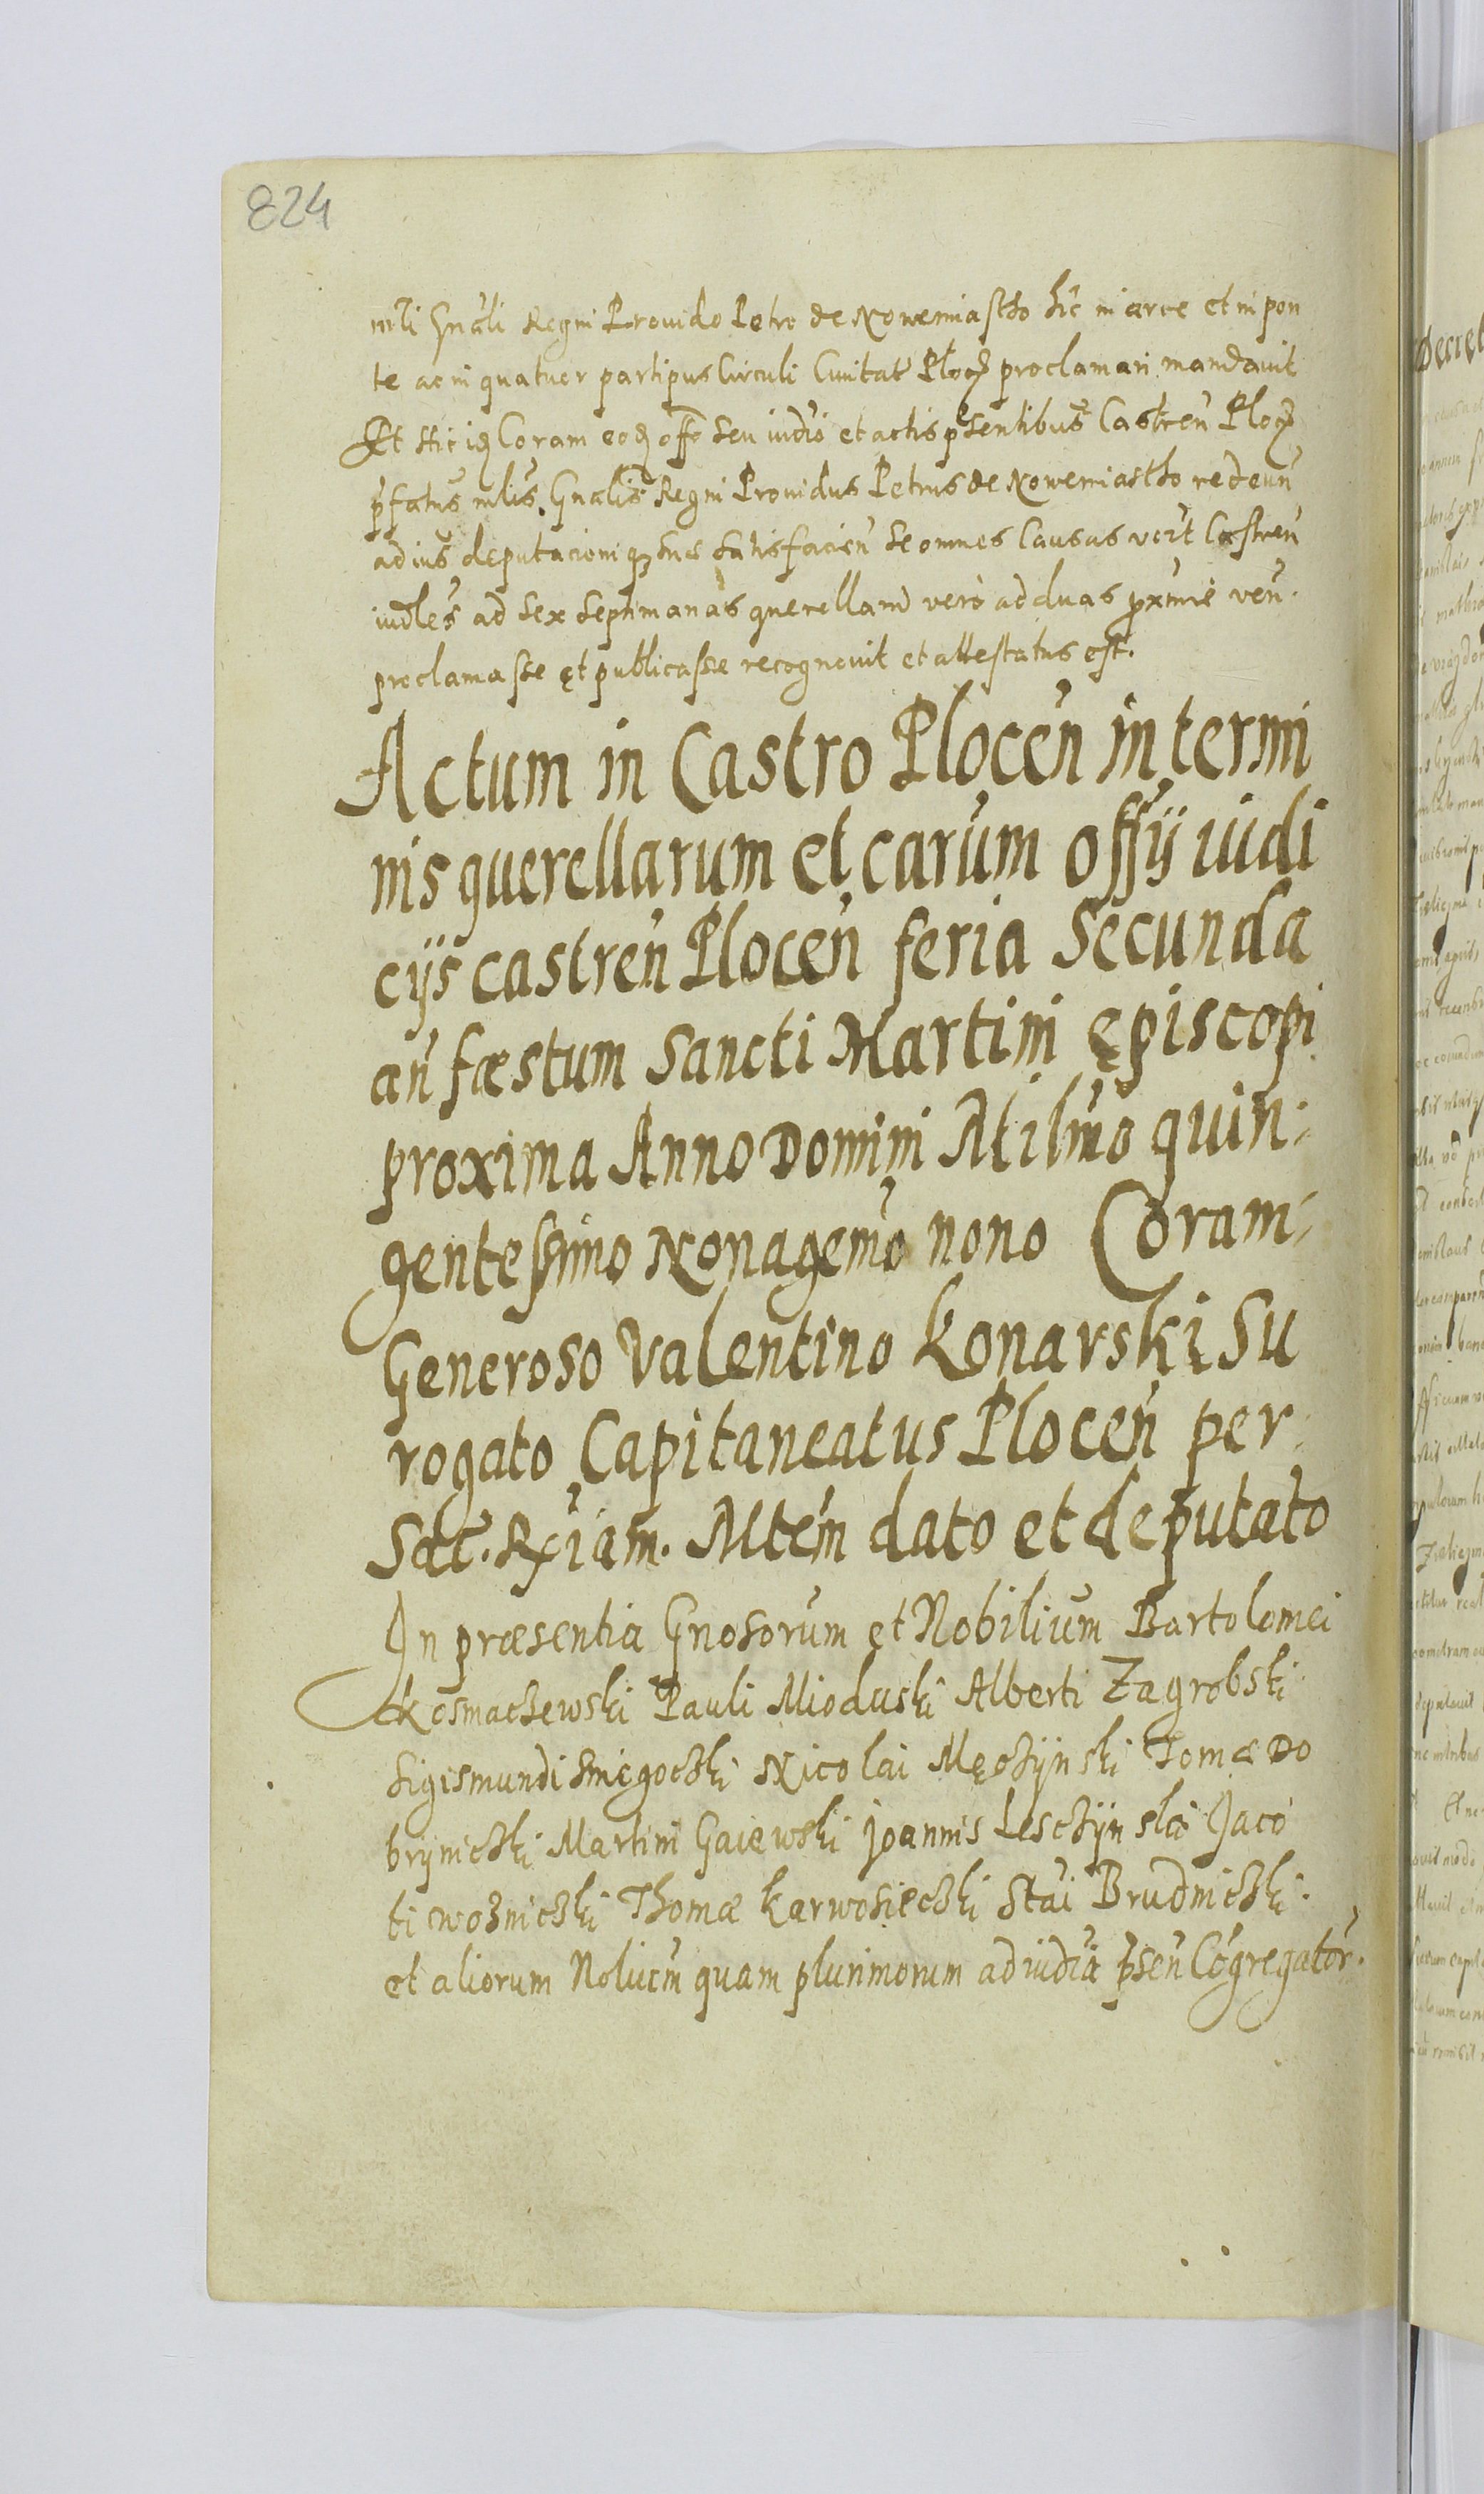 824
mli Gnali Regni Prouido Petro de Nowemiastho hic in arce et in pon
te ac in quatuor partipus Circuli Ciuitat Ploc proclamari mandauit
Et stic id Coram eod offo seu iudio et actis psentibus Castren Ploc
pfatus mlis Gnalis Regni Prouidus Petrus de Nowemiastho redeun
ad ius deputacioniq sue satisfacien se omnes Causas vert Castren
iudles ad sex septimanas querellam verò ad duas pxmie ven.
proclamasse et publicasse recognouit et attestatus est.
Actum in Castro Plocen in termi
nis querellarum et carum offy iudi
cijs castren Plocen feria Secunda
an fæstum Sancti Martini episcopi
proxima Anno Domini Milmo quin:
gentessimo Nonagemo nono Coram
Generoso Valentino Konarski Su
rogato Capitaneatus Plocen per
Sac. Rgiam. Mtem dato et deputato
In præsentia Gnosorum et Nobilium Bartolomei
Kosmaczewski Pauli Mioduski Alberti Zagrobski
Sigismundi Smiegoczki Nicolai Męczijnski Tomæ Do
brijniczki Martini Gaiewski Joannis Lesczijnski Jaco
bi Wozniczki Thomæ Karwosieczki Stai Brudniczki.
et aliorum Noliucm quam plurimorum ad iudia psen Cogregator.